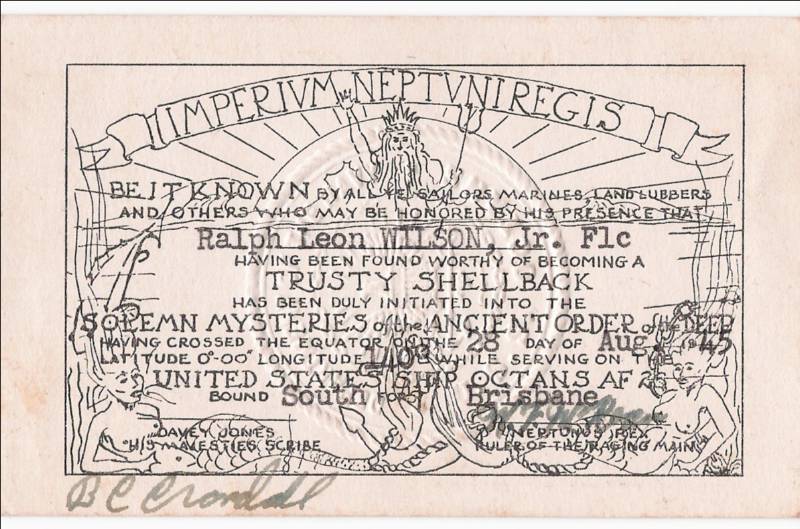 IMPERIVM NEPTVNI REGIS
BE IT KNOWN BY ALL YE SAILORS MARINES, LAND LUBBERS
AND OTHERS WHO MAY BE HONORED BY HIS PRESENCE THAT,
Ralph Leon WILSON, Jr. F1c
HAVING BEEN FOUND WORTHY OF BECOMING A
TRUSTY SHELLBACK
HAS BEEN DULY INITIATED INTO THE
SOLEMN MYSTERIES of the ANCIENT ORDER of the DEEP
HAVING CROSSED THE EQUATOR ON THE 28 DAY OF Aug. 1945
LATITUDE 0°-00' LONGITUDE WHILE SERVING ON THE
UNITED STATES SHIP OCTANS AF 26
BOUND South FOR Brisbane
DAVEY JONES
HIS MAJESTIES SCRIBE
NEPTUNUS REX
RULER OF THE RAGING MAIN
B C Crondall